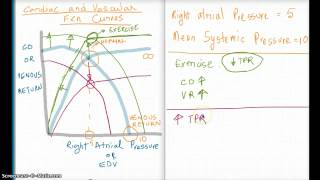 Cardiac and Vascular
Fcn Curves
EXERCISE
NORMAL
CO
OR
VENOUS
RETURN
CO
VENOUS
RETURN
10
Right Atrial Pressure
OR
EDV
Right Atrial Pressure = 5
Mean Systemic Pressure = 10
Exercise ↓ TPR
CO ↑
VR ↑
↑ TPR
Screencast-O-Matic.com